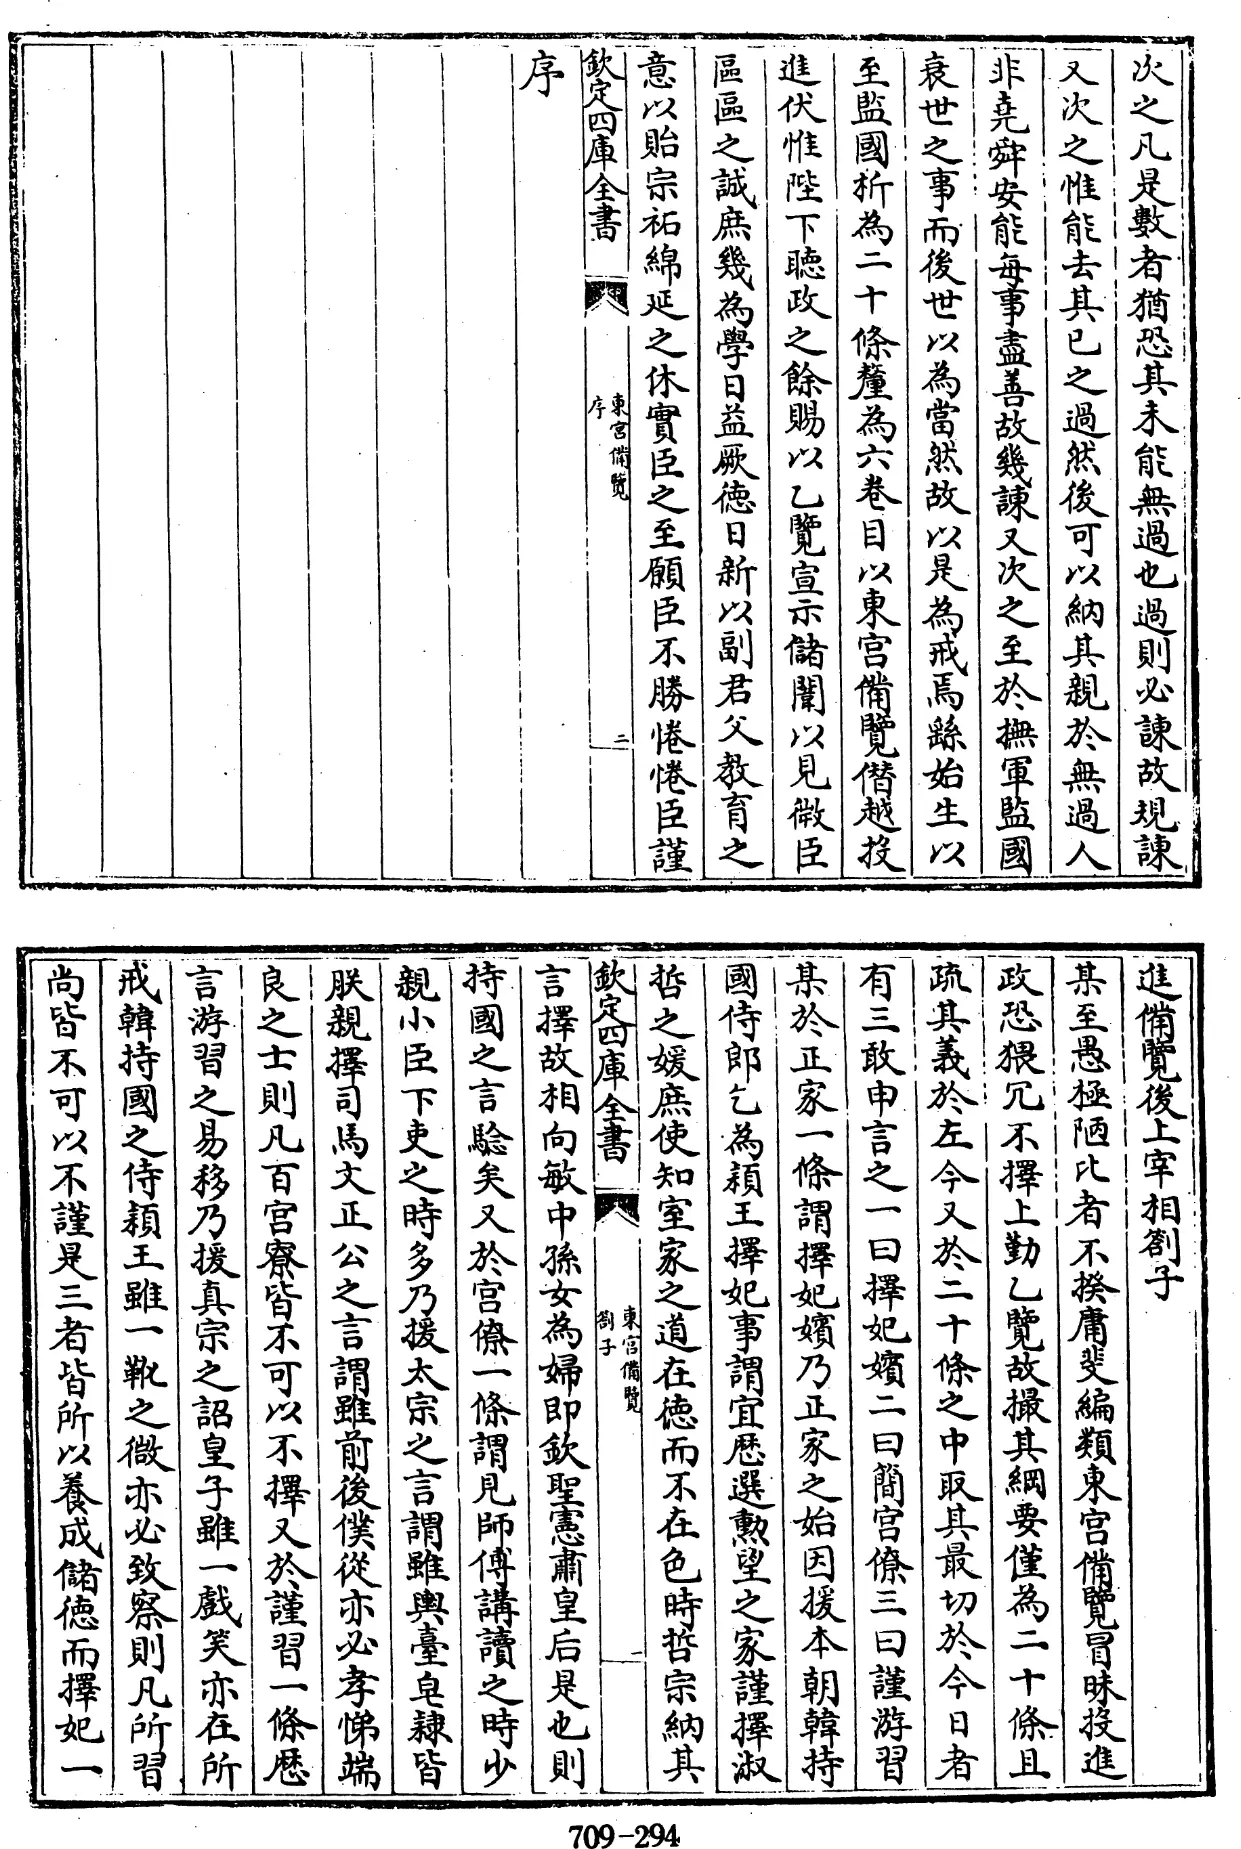 次之凡是數者猶恐其未能無過也過則必諫故規諫
又次之惟能去其已之過然後可以納其親於無過人
非堯舜安能每事盡善故幾諫又次之至於撫軍監國
衰世之事而後世以為當然故以是為戒焉繇始生以
至監國析為二十條釐為六卷目以東宫備覽僭越投
進伏惟陛下聴政之餘賜以乙覽宣示儲闈以見微臣
區區之誠庶幾為學日益厥德日新以副君父教育之
意以貽宗祏綿延之休實臣之至願臣不勝惓惓臣謹
欽定四庫全書
東宫備覽
序
二
序
進備覽後上宰相劄子
某至愚極陋比者不揆庸斐編類東宫備覽冒昧投進
政恐猥冗不擇上勤乙覽故撮其綱要僅為二十條且
疏其義於左今又於二十條之中取其最切於今日者
有三敢申言之一曰擇妃嬪二曰簡宫僚三曰謹游習
某於正家一條謂擇妃嬪乃正家之始因援本朝韓持
國侍郎乞為穎王擇妃事謂宜歴選勲望之家謹擇淑
哲之媛庶使知室家之道在德而不在色時哲宗納其
欽定四庫全書
東宫備覽
劄子
一
言擇故相向敏中孫女為婦即欽聖憲肅皇后是也則
持國之言驗矣又於宫僚一條謂見師傅講讀之時少
親小臣下吏之時多乃援太宗之言謂雖輿臺皁隸皆
朕親擇司馬文正公之言謂雖前後僕從亦必孝悌端
良之士則凡百宫寮皆不可以不擇又於謹習一條歴
言游習之易移乃援真宗之詔皇子雖一戲笑亦在所
戒韓持國之侍潁王雖一靴之微亦必致察則凡所習
尚皆不可以不謹是三者皆所以養成儲德而擇妃一
709-294